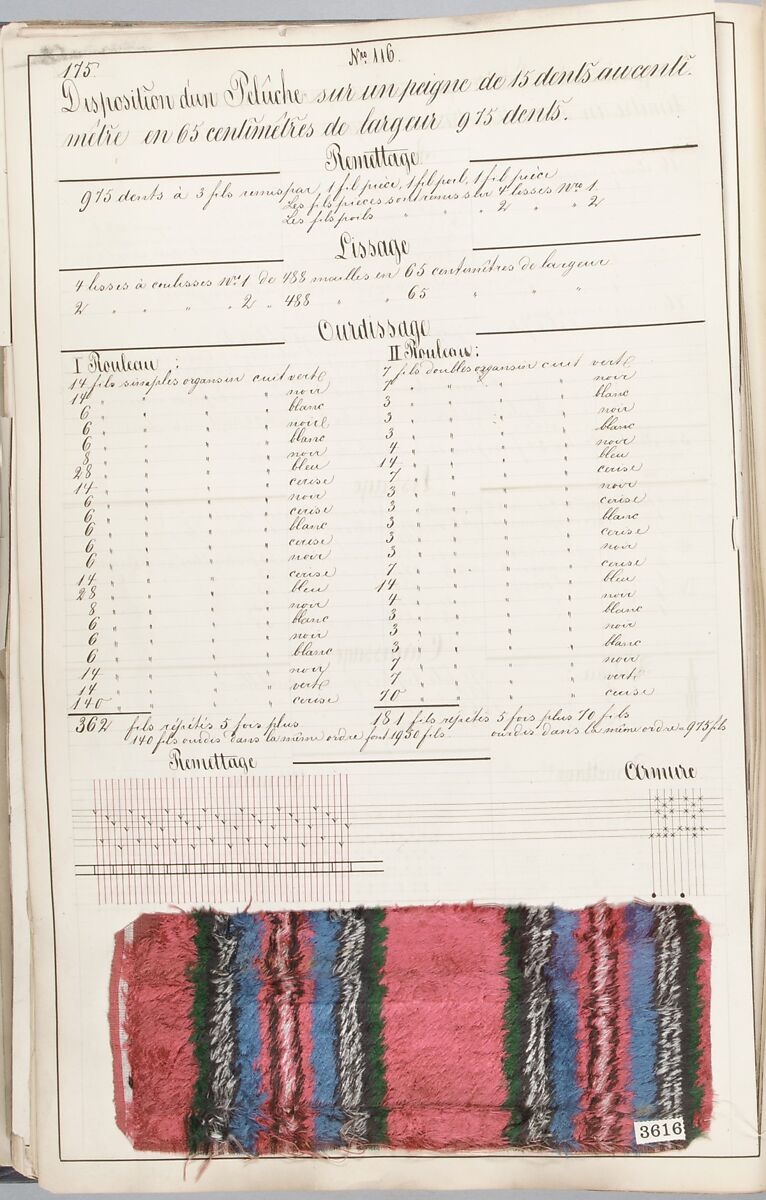 175.
Nro. 116.
Disposition d'un Pelûche sur un peigne de 15 dents au centi.
métre en 65 centimétres de largeur 975 dents.
Remettage
975 dents à 3 fils remis par, 1 fil pièce, 1 fil poil, 1 fil pièce
Les fils pièces sont remis sur 4 lisses Nro 1.
Les fils poils " " " 2 " " 2
Lissage
4 lisses à coulisses Nro 1 de 488 mailles en 65 centimétres de largeur
2 " " " " 2 " 488 " " 65 " " "
Ourdissage
I Rouleau :
14 fils simples organsin cuit verte
14 " " " " noir
6 " " " " blanc
6 " " " " noire
6 " " " " blanc
8 " " " " noir
28 " " " " bleu
14 " " " " cerise
6 " " " " noir
6 " " " " cerise
6 " " " " blanc
6 " " " " cerise
6 " " " " noir
14 " " " " cerise
28 " " " " bleu
8 " " " " noir
6 " " " " blanc
6 " " " " noir
6 " " " " blanc
14 " " " " noir
14 " " " " verte
140 " " " " cerise
362 fils répétés 5 fois plus
140 fils ourdis dans la même ordre font 1950 fils
II Rouleau:
7 fils doubles organsin cuit verte
7 " " " " noir
3 " " " " blanc
3 " " " " noir
3 " " " " blanc
4 " " " " noir
14 " " " " bleu
7 " " " " cerise
3 " " " " noir
3 " " " " cerise
3 " " " " blanc
3 " " " " cerise
3 " " " " noir
7 " " " " cerise
14 " " " " bleu
4 " " " " noir
3 " " " " blanc
3 " " " " noir
3 " " " " blanc
7 " " " " noir
7 " " " " verte
70 " " " " cerise
181 fils répétés 5 fois plus 70 fils
ourdis dans la même ordre = 975 fils
Remettage
Armure
3616